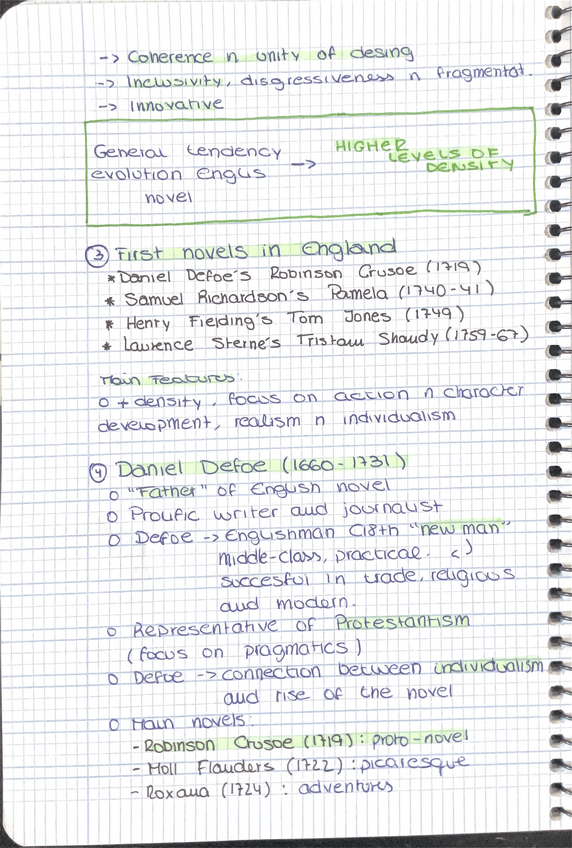 -> Coherence n unity of desing
-> Inclusivity, disgressiveness n fragmentat.
-> Innovative
General tendency
evolution englis
novel
-> HIGHER
LEVELS OF
DENSITY
③ First novels in England
* Daniel Defoe's Robinson Crusoe (1719)
* Samuel Richardson's Pamela (1740-41)
* Henry Fielding's Tom Jones (1749)
* Laurence Sterne's Tristam Shandy (1759-67)
Main Features:
o + density, focus on action n character
development, realism n individualism
④ Daniel Defoe (1660-1731)
o "Father" of English novel
o Prolific writer and journalist
o Defoe -> Englishman C18th "new man"
middle-class, practical,
succesful in trade, religious
and modern.
o Representative of Protestantism
(focus on pragmatics)
o Defoe -> connection between individualism
and rise of the novel
o Main novels:
- Robinson Crusoe (1719): proto-novel
- Moll Flanders (1722): picaresque
- Roxana (1724): adventures